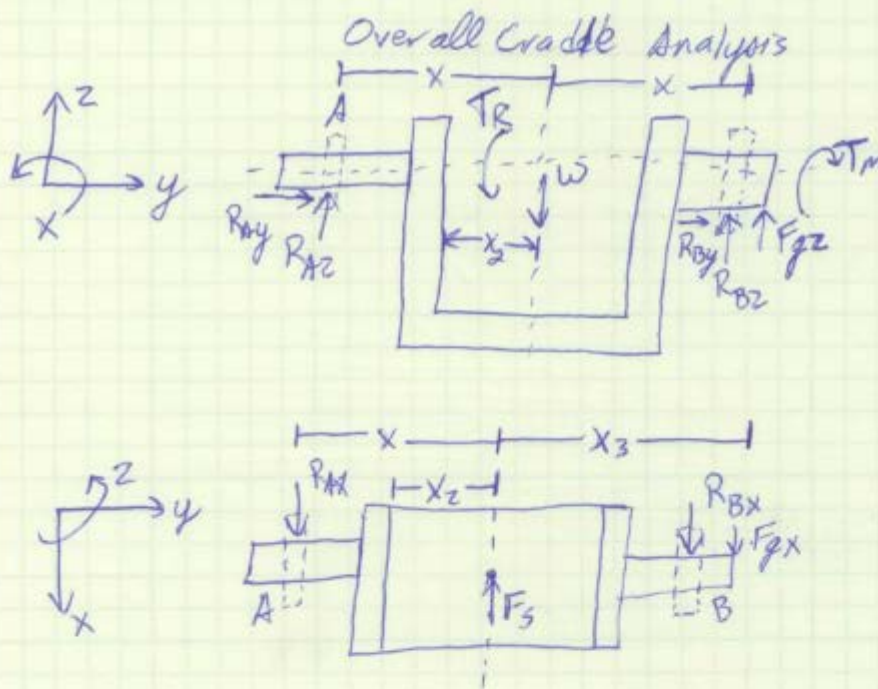 Overall Cradle Analysis
x x
z
A
T_R
W
y
T_M
x
R_Ay
R_Az
x_2
R_By
R_Bz
F_gz
x x_3
z
R_Ax
x_2
R_Bx
y
F_gx
x
A
F_s
B